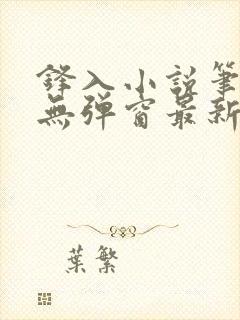 鋒入小說筆
無彈窗最新
葉繁